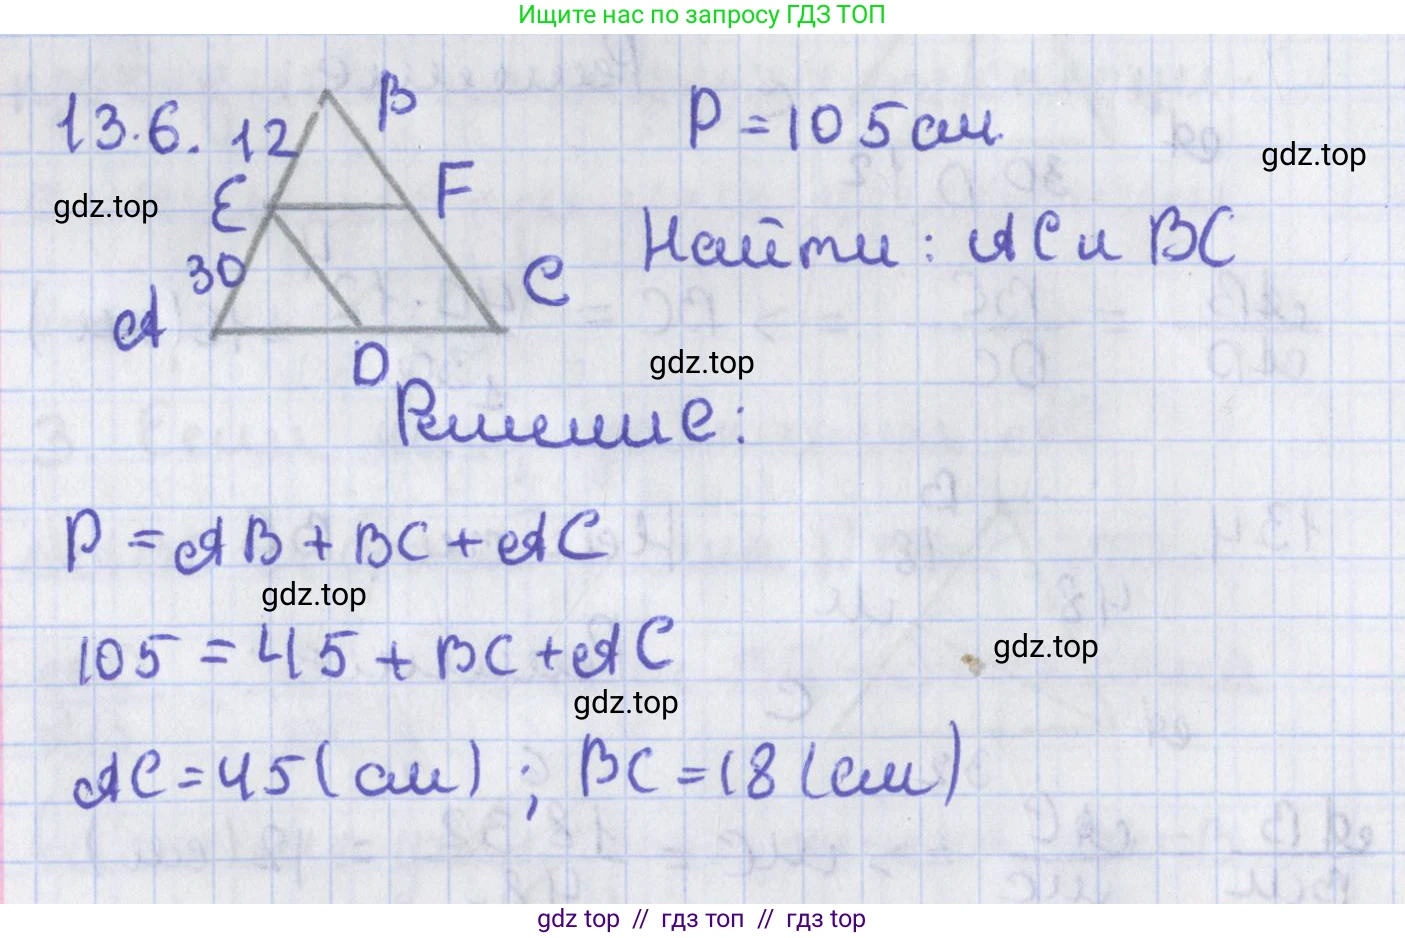 Ищите нас по запросу ГДЗ ТОП
13.6. 12 B
P = 105 см
gdz.top
gdz.top
E F
Найти: AC и BC
30
A C
gdz.top
D
Решение:
P = AB + BC + AC
gdz.top
105 = 45 + BC + AC
gdz.top
gdz.top
AC = 45 (см) ; BC = 18 (см)
gdz top // гдз топ // гдз top